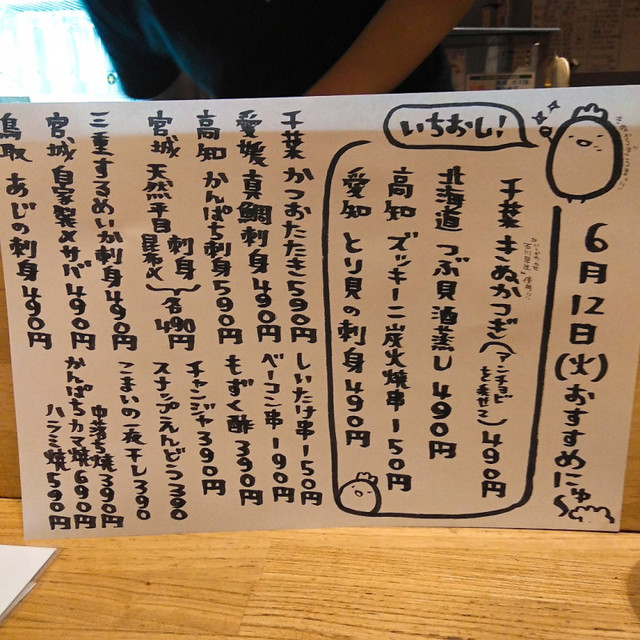 6月12日(火)おすすめにゅ〜
いちおし!
千葉 きぬかつぎ(アンチョビを乗せて)490円
北海道 つぶ貝酒蒸し490円
高知 ズッキーニ炭火焼串150円
愛知 とり貝の刺身490円
千葉 かつおたたき590円
愛媛 真鯛刺身490円
高知 かんぱち刺身590円
宮城 天然平目 刺身 昆布〆 各490円
三重 するめいか刺身490円
宮城 自家製〆サバ490円
鳥取 あじの刺身490円
しいたけ串150円
ベーコン串190円
もずく酢390円
チャンジャ390円
スナップえんどう390
こまいの一夜干し390
中落ち焼390円
かんぱちカマ焼690円
ハラミ焼590円